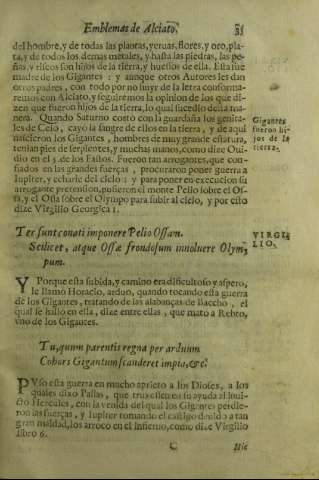 Emblemas de Alciato. 35
del hombre, y de todas las plantas, yeruas, flores, y oro, pla-
ta, y de todos los demas metales, y hasta las piedras, las pe-
ñas, y riscos son hijos de la tierra, y huessos de ella. Esta fue
madre de los Gigantes: y aunque otros Autores les dan
otros padres, con todo por no huyr de la letra conforma-
remos con Alciato, y seguiremos la opinion de los que di-
zen que fueron hijos de la tierra, lo qual sucedio desta ma-
nera. Quando Saturno cortò con la guadaña los genita-
les de Celo, cayò la sangre de ellos en la tierra, y de aqui
nacieron los Gigantes, hombres de muy grande estatura,
tenian pies de serpientes, y muchas manos, como dize Oui-
dio en el 5. de los Fastos. Fueron tan arrogantes, que con-
fiados en las grandes fuerças, procuraron poner guerra a
Iupiter, y echarle del cielo: y para poner en execucion su
arrogante pretension, pusieron el monte Pelio sobre el Os-
sa, y el Ossa sobre el Olympo para subir al cielo, y por esto
dize Virgilio Georgica 1.
Gigantes
fueron hi-
jos de la
tierra.
Ter sunt conati imponere Pelio Ossam.
Scilicet, atque Ossæ frondosum inuoluere Olym-
pum.
VIRGI-
LIO.
Y Porque esta subida, y camino era dificultoso y aspero,
le llamò Horacio, arduo, quando tocando esta guerra
de los Gigantes, tratando de las alabanças de Baccho, el
qual se hallò en ella, dize entre ellas, que mató a Rebro,
vno de los Gigantes.
Tu, quum parentis regna per arduum
Cohors Gigantum scanderet impia, &c.
PVso esta guerra en mucho aprieto a los Dioses, a los
quales dixo Pallas, que truxessen a su ayuda al inui-
cto Hercules, con la venida del qual los Gigantes perdie-
ron las fuerças, y Iupiter tomando el castigo deuido a tan
gran maldad, los arrojò en el infierno, como dize Virgilio
libro 6.
C Hic